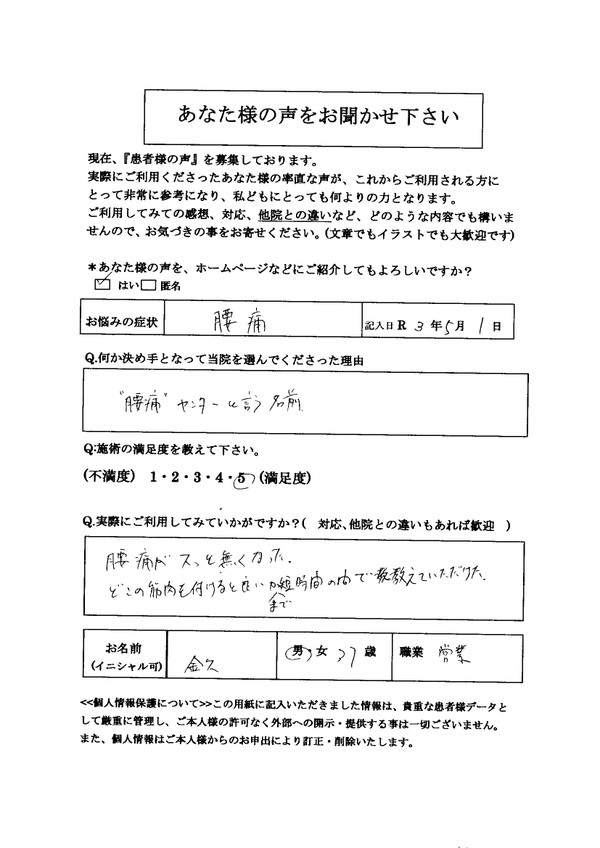 あなた様の声をお聞かせ下さい
現在、『患者様の声』を募集しております。
実際にご利用くださったあなた様の率直な声が、これからご利用される方に
とって非常に参考になり、私どもにとっても何よりの力となります。
ご利用してみての感想、対応、他院との違いなど、どのような内容でも構いま
せんので、お気づきの事をお寄せください。(文章でもイラストでも大歓迎です)
＊あなた様の声を、ホームページなどにご紹介してもよろしいですか？
はい 匿名
お悩みの症状 腰痛 記入日 R 3 年 5 月 1 日
Q.何か決め手となって当院を選んでくださった理由
"腰痛" センターと言う名前
Q:施術の満足度を教えて下さい。
(不満度) 1・2・3・4・5 (満足度)
Q.実際にご利用してみていかがですか？( 対応、他院との違いもあれば歓迎 )
腰痛がスっと無くなった.
どこの筋肉を付けると良いか短時間の中で教えていただけた.
まで
お名前 金久 男 女 37 歳 職業 営業
(イニシャル可)
<<個人情報保護について>>この用紙に記入いただきました情報は、貴重な患者様データと
して厳重に管理し、ご本人様の許可なく外部への開示・提供する事は一切ございません。
また、個人情報はご本人様からのお申出により訂正・削除いたします。